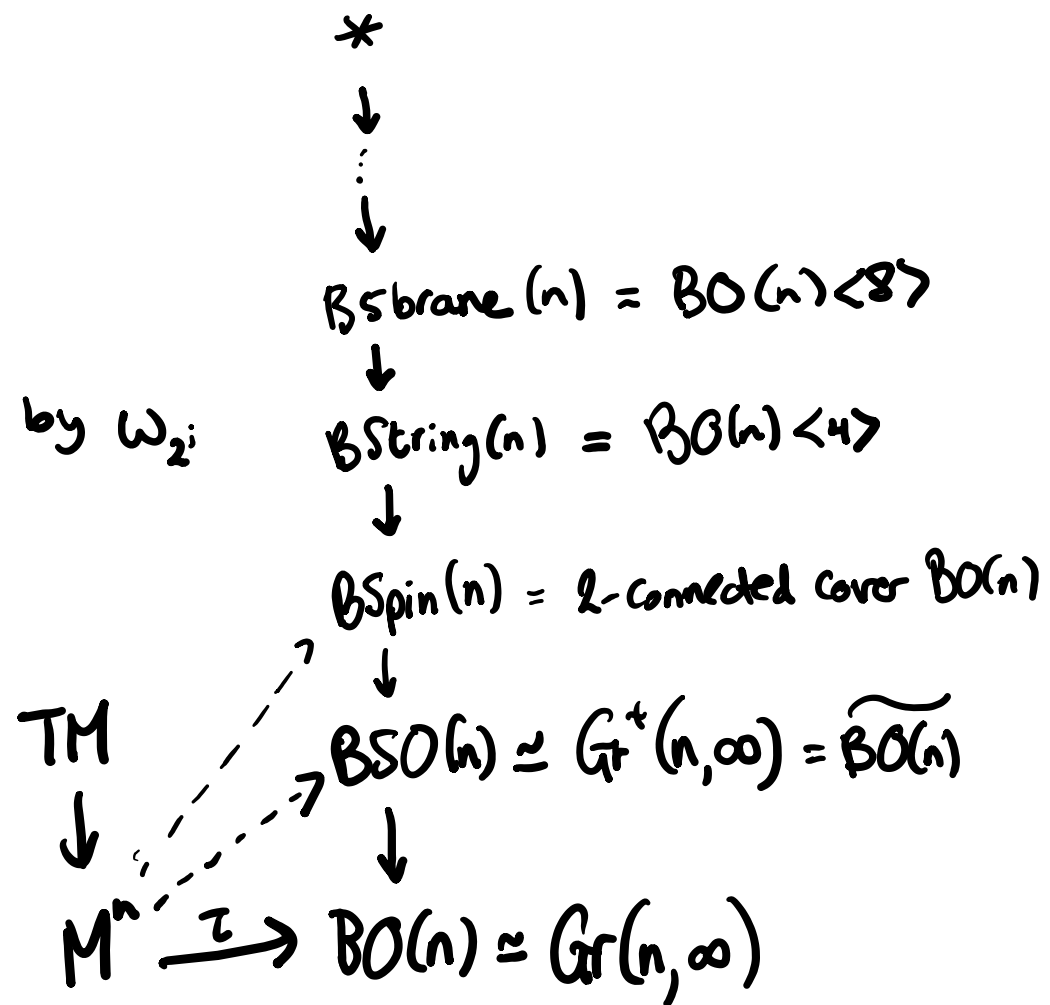 *
BSbrane(n) = BO(n)<8>
by w_{2^i}
BString(n) = BO(n)<4>
BSpin(n) = 2-connected cover BO(n)
TM
BSO(n) ≃ Gr⁺(n,∞) = \widetilde{BO(n)}
Mⁿ τ BO(n) ≃ Gr(n,∞)